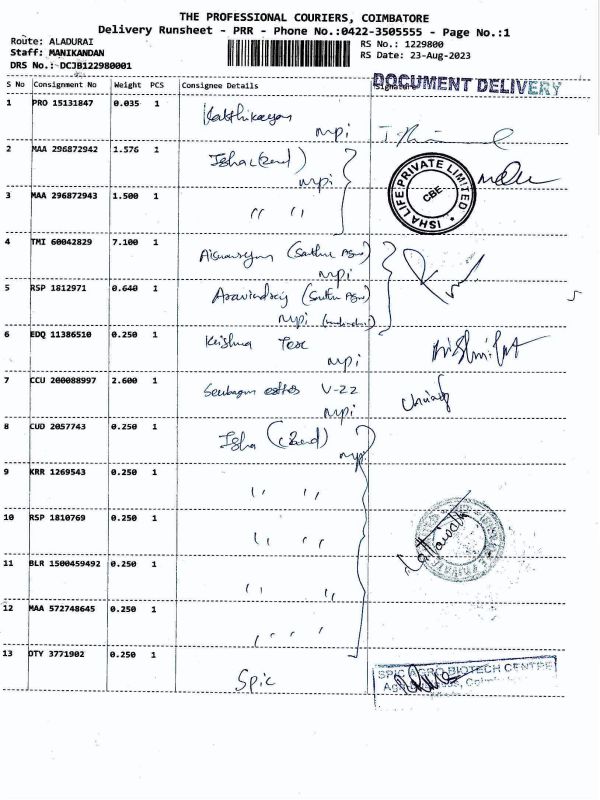 THE PROFESSIONAL COURIERS, COIMBATORE
Delivery Runsheet - PRR - Phone No.:0422-3505555 - Page No.:1
Route: ALADURAI
RS No.: 1229800
Staff: MANIKANDAN
RS Date: 23-Aug-2023
DRS No.:-DCJB122980001
S No Consignment No Weight PCS Consignee Details
DOCUMENT DELIVERY
1 PRO 15131847 0.035 1
mpi
2 MAA 296872942 1.576 1 Isha
mpi
ISHA LIFE PRIVATE LIMITED
CBE
3 MAA 296872943 1.500 1 " "
4 TMI 60042829 7.100 1
mpi
5 RSP 1812971 0.640 1
mpi
6 EDQ 11386510 0.250 1 Krishna Tex
mpi
7 CCU 200088997 2.600 1 V-22
mpi
8 CUD 2057743 0.250 1 Isha
mpi
9 KRR 1269543 0.250 1 " "
10 RSP 1810769 0.250 1 " "
11 BLR 1500459492 0.250 1 " "
12 MAA 572748645 0.250 1 " "
13 DTY 3771902 0.250 1
Spic
SPIC AGRO BIOTECH CENTRE